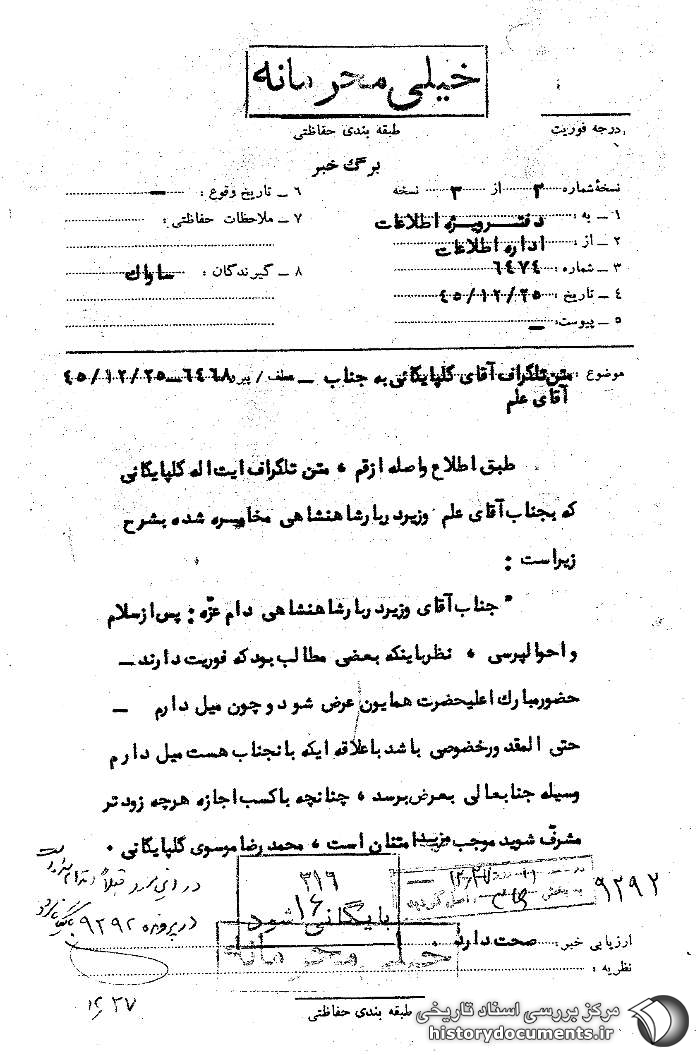 خیلی محرمانه
طبقه بندی حفاظتی
درجه فوریت
برگ خبر
نسخهٔ شماره ۲ از ۳ نسخه
۱ ــ به : دفتر ویژه اطلاعات
۲ ــ از : اداره اطلاعات
۳ ــ شماره : ۶۴۷۴
۴ ــ تاریخ : ۴۵/۱۲/۲۵
۵ ــ پیوست : ــ
۶ ــ تاریخ وقوع : ــ
۷ ــ ملاحظات حفاظتی :
۸ ــ گیرندگان : ساواک
موضوع : متن تلگراف آقای گلپایگانی به جناب ــ عطف / پیرو ۶۴۶۸ ــ ۴۵/۱۲/۲۵
آقای علم
طبق اطلاع واصله از قم ، متن تلگراف ایت اله گلپایگانی
که بجناب آقای علم وزیر دربار شاهنشاهی مخابره شده بشرح
زیر است :
" جناب آقای وزیر دربار شاهنشاهی دام عزّه : پس از سلام
و احوالپرسی ، نظر باینکه بعضی مطالب بود که فوریت دارند ــ
حضور مبارک اعلیحضرت همایون عرض شود و چون میل دارم ــ
حتی المقدور خصوصی باشد با علاقه ایکه بانجناب هست میل دارم
وسیله جنابعالی بعرض برسد ، چنانچه با کسب اجازه هرچه زودتر
مشرّف شوید موجب مزید امتنان است ، محمد رضا موسوی گلپایگانی .
۹۲۹۲
۳۱۶
۱۶
بایگانی شود
در پرونده ۹۲۹۲
ارزیابی خبر : صحت دارد .
نظریه :
خیلی محرمانه
۱۲/۲۷
طبقه بندی حفاظتی
مرکز بررسی اسناد تاریخی
historydocuments.ir